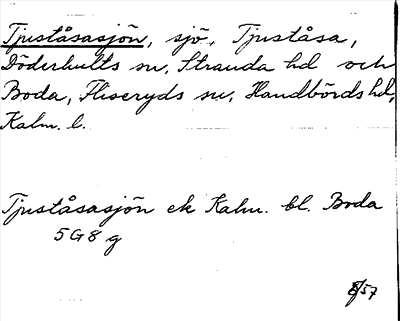 Tjuståsasjön, sjö, Tjuståsa,
Döderhults sn, Stranda hd och
Boda, Fliseryds sn, Handbörds hd,
Kalm. l.
Tjuståsasjön ek Kalm. bl. Boda
5G8 g
8/57